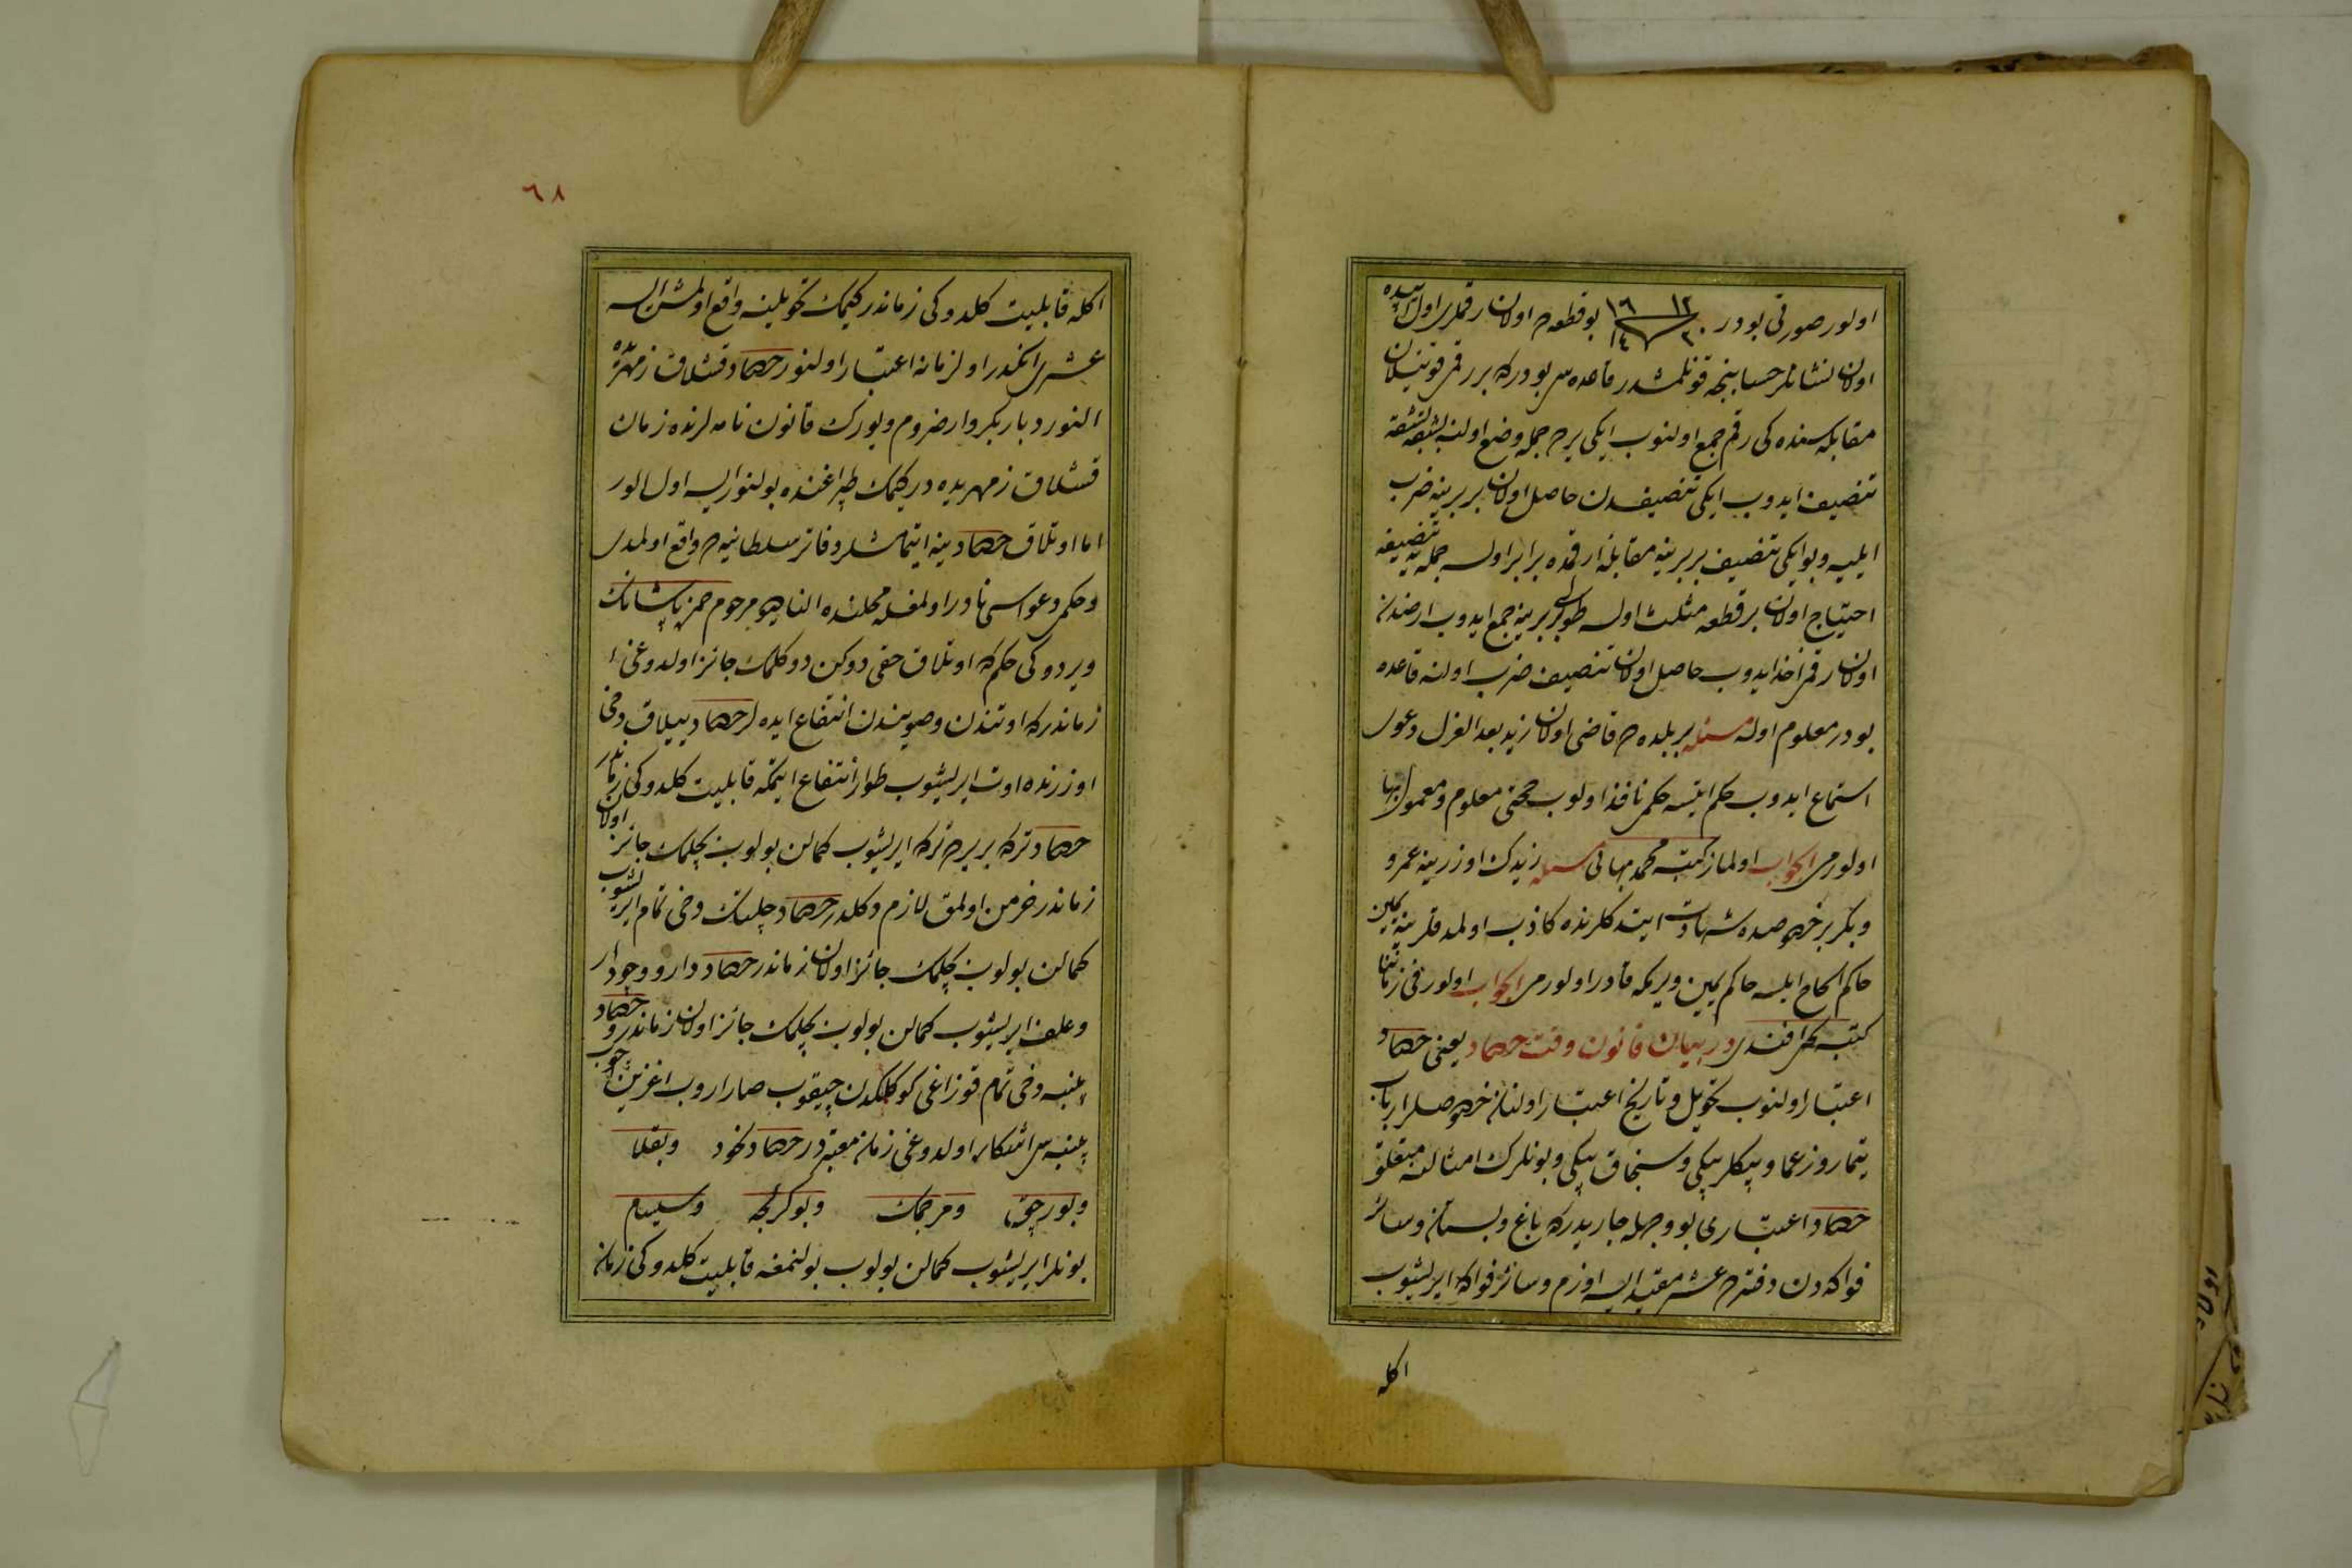 اولور صورتی بودر ١٢ ١٦ ٢٠ ١٤ بو قطعه ده اولان رقملری اول
اولان نشانلر حسابنجه قونلمشدر قاعده سی بودركه بر رقمی قوتیلان
مقابله سنده كی رقم جمع اولنوب ایكی یرده جمله وضع اولنه بشقه بشقه
تنصیف ایدوب ایكی تنصیفدن حاصل اولان بر برینه ضرب
ایلیه و بو ایكی تنصیف بر برینه مقابل رقمده برابر اولسه جمله یه تنصیفه
احتیاج اولان بر قطعه مثلث اولسه طولی بر برینه جمع ایدوب ارضنده
اولان رقمی اخذ ایدوب حاصل اولان تنصیف ضرب اولنه قاعده
بودر معلوم اوله مسئله بر بلده ده قاضی اولان زید بعد العزل دعوی
استماع ایدوب حكم ایتسه حكمی نافذ اولوب حجتی معلوم و معمول بها
اولورمی الجواب اولماز كتبه محمد بهائی مسئله زیدك اوزرینه عمرو
و بكر بر خصوصده شهادت ایتدكلرنده كاذب اولمدقلرینه یمین
حاكم الحاح ایلسه حاكم یمین ویرمكه قادر اولورمی الجواب اولور فی زماننا
كتبه یحیی افندی در بیان قانون وقت حصاد یعنی حصاد
اعتبار اولنوب تحویل و تاریخ اعتبار اولنان خصوصلر ارباب
تیمار و زعما و بیكلربیكی و سنجاق بیكی و بونلرك امثالنه متعلق
حصاد اعتباری بو وجهله جاریدركه باغ و بستان و سائر
فواكه دن دفترده عشر مقید ایسه اوزم و سائر فواكه ایریشوب
اكله
٦٨
اكله قابلیت كلدوكی زماندر كیمك تحویلینه واقع اولمش ایسه
عشری انكدر اول زمانه اعتبار اولنور حصاد قشلاق زمهریرده
النور دیاربكر و ارضروم و یورك قانون نامه لرنده زمان
قشلاق زمهریده در كیمك طپراغنده بولنور ایسه اول الور
اما اوتلاق حصادینه ایتمامشلر دفاتر سلطانیه ده واقع اولمدی
و حكمی دعواسی نادر اولمغله محلنده النا مرحوم حمزه پاشانك
ویردوكی حكم كه اوتلاق حقی دوكن دوكلمك جائز اولدوغی
زماندركه اوتندن و صویندن انتفاع ایده لر حصاد ییلاق دخی
اوزرنده اوت ایریشوب طوار انتفاع ایتمكه قابلیت كلدوكی زماندر
حصاد تركه بر یرده تركه ایریشوب كمالن بولوب بچلمك جائز اولان
زماندر خرمن اولمق لازم دكلدر حصاد چلتك دخی تمام ایریشوب
كمالن بولوب بچلمك جائز اولان زماندر حصاد دارو و جودار
و علف ایریشوب كمالن بولوب بچلمك جائز اولان زماندر و حصاد
پنبه دخی تمام قوزاغی كوكلكدن چیقوب صاراروب اغزین
پنبه سی اشكار اولدوغی زمان معتبردر حصاد نخود و بقلا
و بورچق و مرجمك و بوكرلجه و سیسام
بونلر ایریشوب كمالن بولوب یولنمغه قابلیت كلدوكی زمان